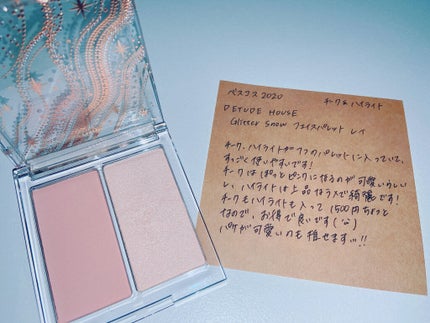 ベスコス2020 チーク&ハイライト
ETUDE HOUSE
Glitter Snow フェイスパレット レイ
チーク、ハイライトが1つのパレットに入っていて、
すっごく使いやすいです!
チークはぽっとピンクになるのが可愛いらしい
し、ハイライトは上品なラメで綺麗です!
チークもハイライトも入って1500円ちょっと
なので、お得で良いです(¨̮)
パケが可愛いのも推せます…!!